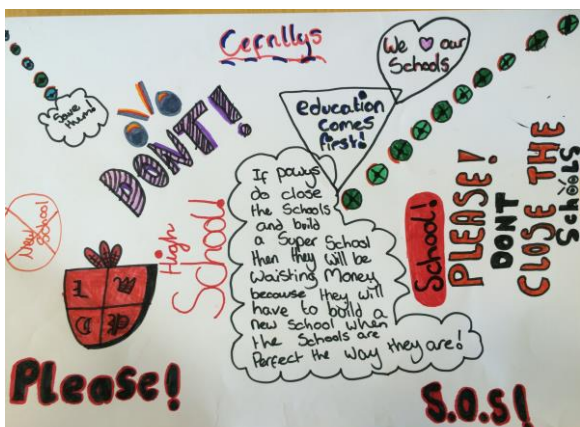 Cefnllys
We our
Schools
Save
them!
DON'T!
education
comes
first!
If powys
do close
the Schools
and build
a Super School
then they will be
waisting Money
because they will
have to build a
new School when
the Schools are
Perfect the way they are!
New
School
High
School!
School!
PLEASE!
DONT
CLOSE THE
Schools
Please!
S.O.S!